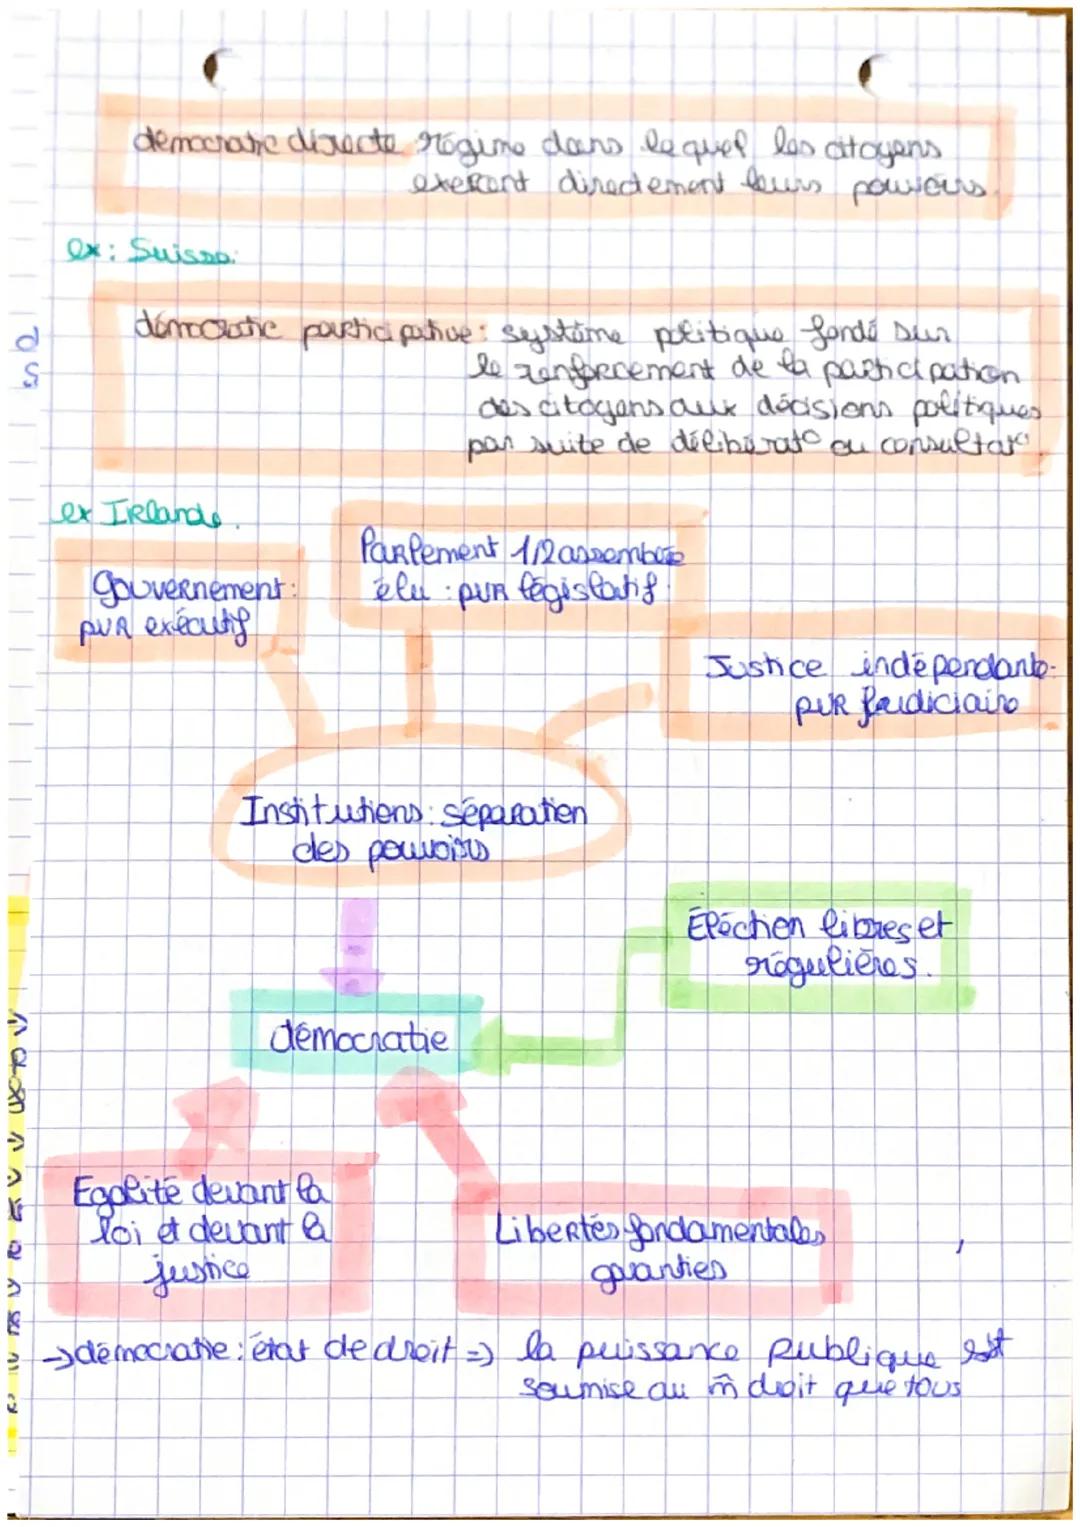 démocratie directe régime dans lequel les citoyens
exercent directement leurs pouvoirs.
ex: Suisse.
démocratie participative: système politique fondé sur
le renforcement de la participation
des citoyens aux décisions politiques
par suite de délibérat° ou consultat°.
ex Irlande.
Parlement 1/2 assemblée
élu : pvR législatif.
gouvernement:
pvR exécutif
Justice indépendante:
pvR
Institutions: séparation
des pouvoirs
Éléction libres et
régulières.
démocratie
Egalité devant la
loi et devant la
justice
Libertés fondamentales
garanties
→démocratie: état de droit => la puissance publique est
soumise au m̂ droit que tous